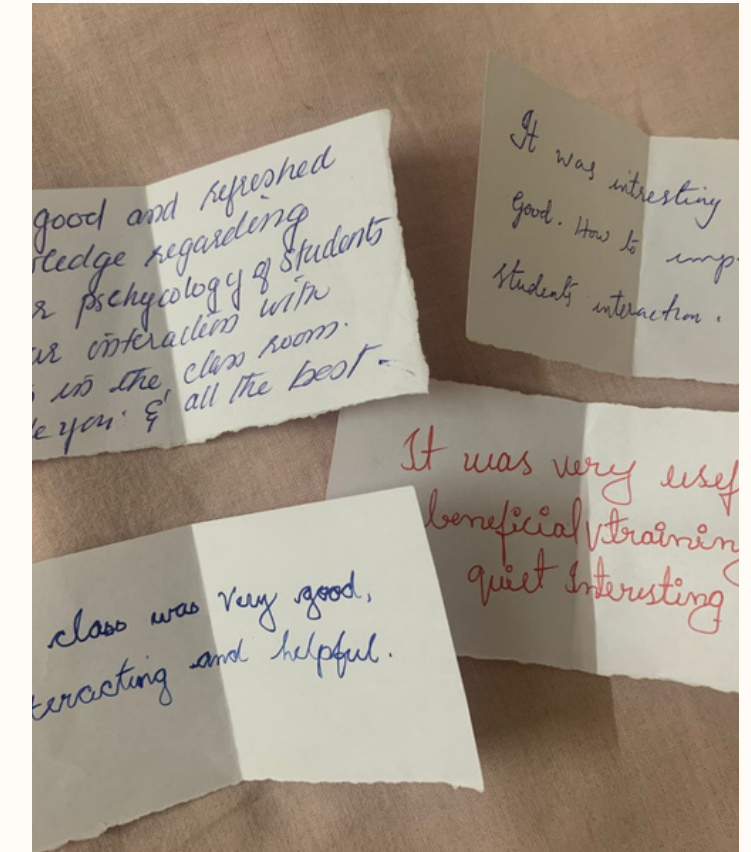 good and refreshed
ledge regarding
pschycology of students
interaction with
in the class room.
you. & all the best.
It was intresting
Good. How to imp
students interaction.
It was very usef
beneficial training
quiet Interesting
class was very good,
teracting and helpful.